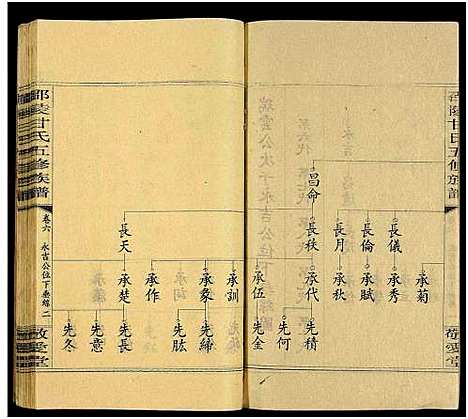 邵陵甘氏五修族譜
昌命
長儀
長倫
長月
長秩
長天
承菊
承秀
承賦
承秋
承代
承伍
承訓
承象
承作
承楚
先積
先何
先金
先締
先肱
先長
先意
先冬
敬愛堂
邵陵甘氏五修族譜
卷六
永吉公位下垂絲
二
敬愛堂